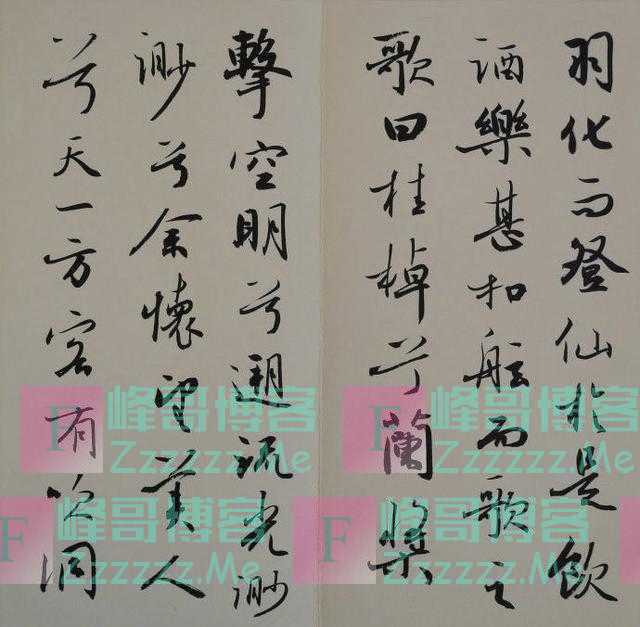 羽化而登仙於是飲
酒樂甚扣舷而歌之
歌曰桂棹兮蘭槳
擊空明兮遡流光渺
渺兮余懷望美人
兮天一方客有吹洞
F 峰哥博客
Zzzzzz.Me
F 峰哥博客
Zzzzzz.Me
F 峰哥博客
Zzzzzz.Me
F 峰哥博客
Zzzzzz.Me